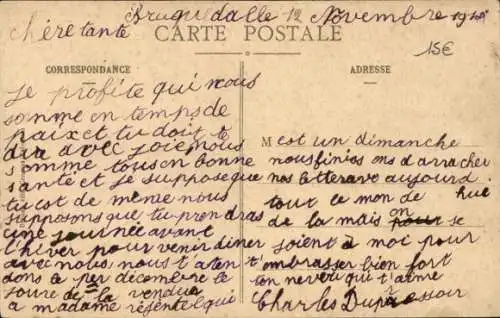 Bruquedalle 12 Novembre 19
chère tante
CARTE POSTALE
15€
CORRESPONDANCE
ADRESSE
Je profite qui nous
somme en temps de
paix et tu doit te
dir avec joie nous
somme tous en bonne
santé et je suppose que
tu est de même nous
supposons que tu prendras
une journée avant
l'hiver pour venir diner
avec nous nous t'aten t'
dons le per décembre le
jour de la vendue
a madame
M est un dimanche
nous finisons d'arracher
nos betterave aujourd
hue
tout le mon de
de la mais on pour se
joient à moc pour
t'ambrasser bien fort
ton neveu qui t'aime
Charles